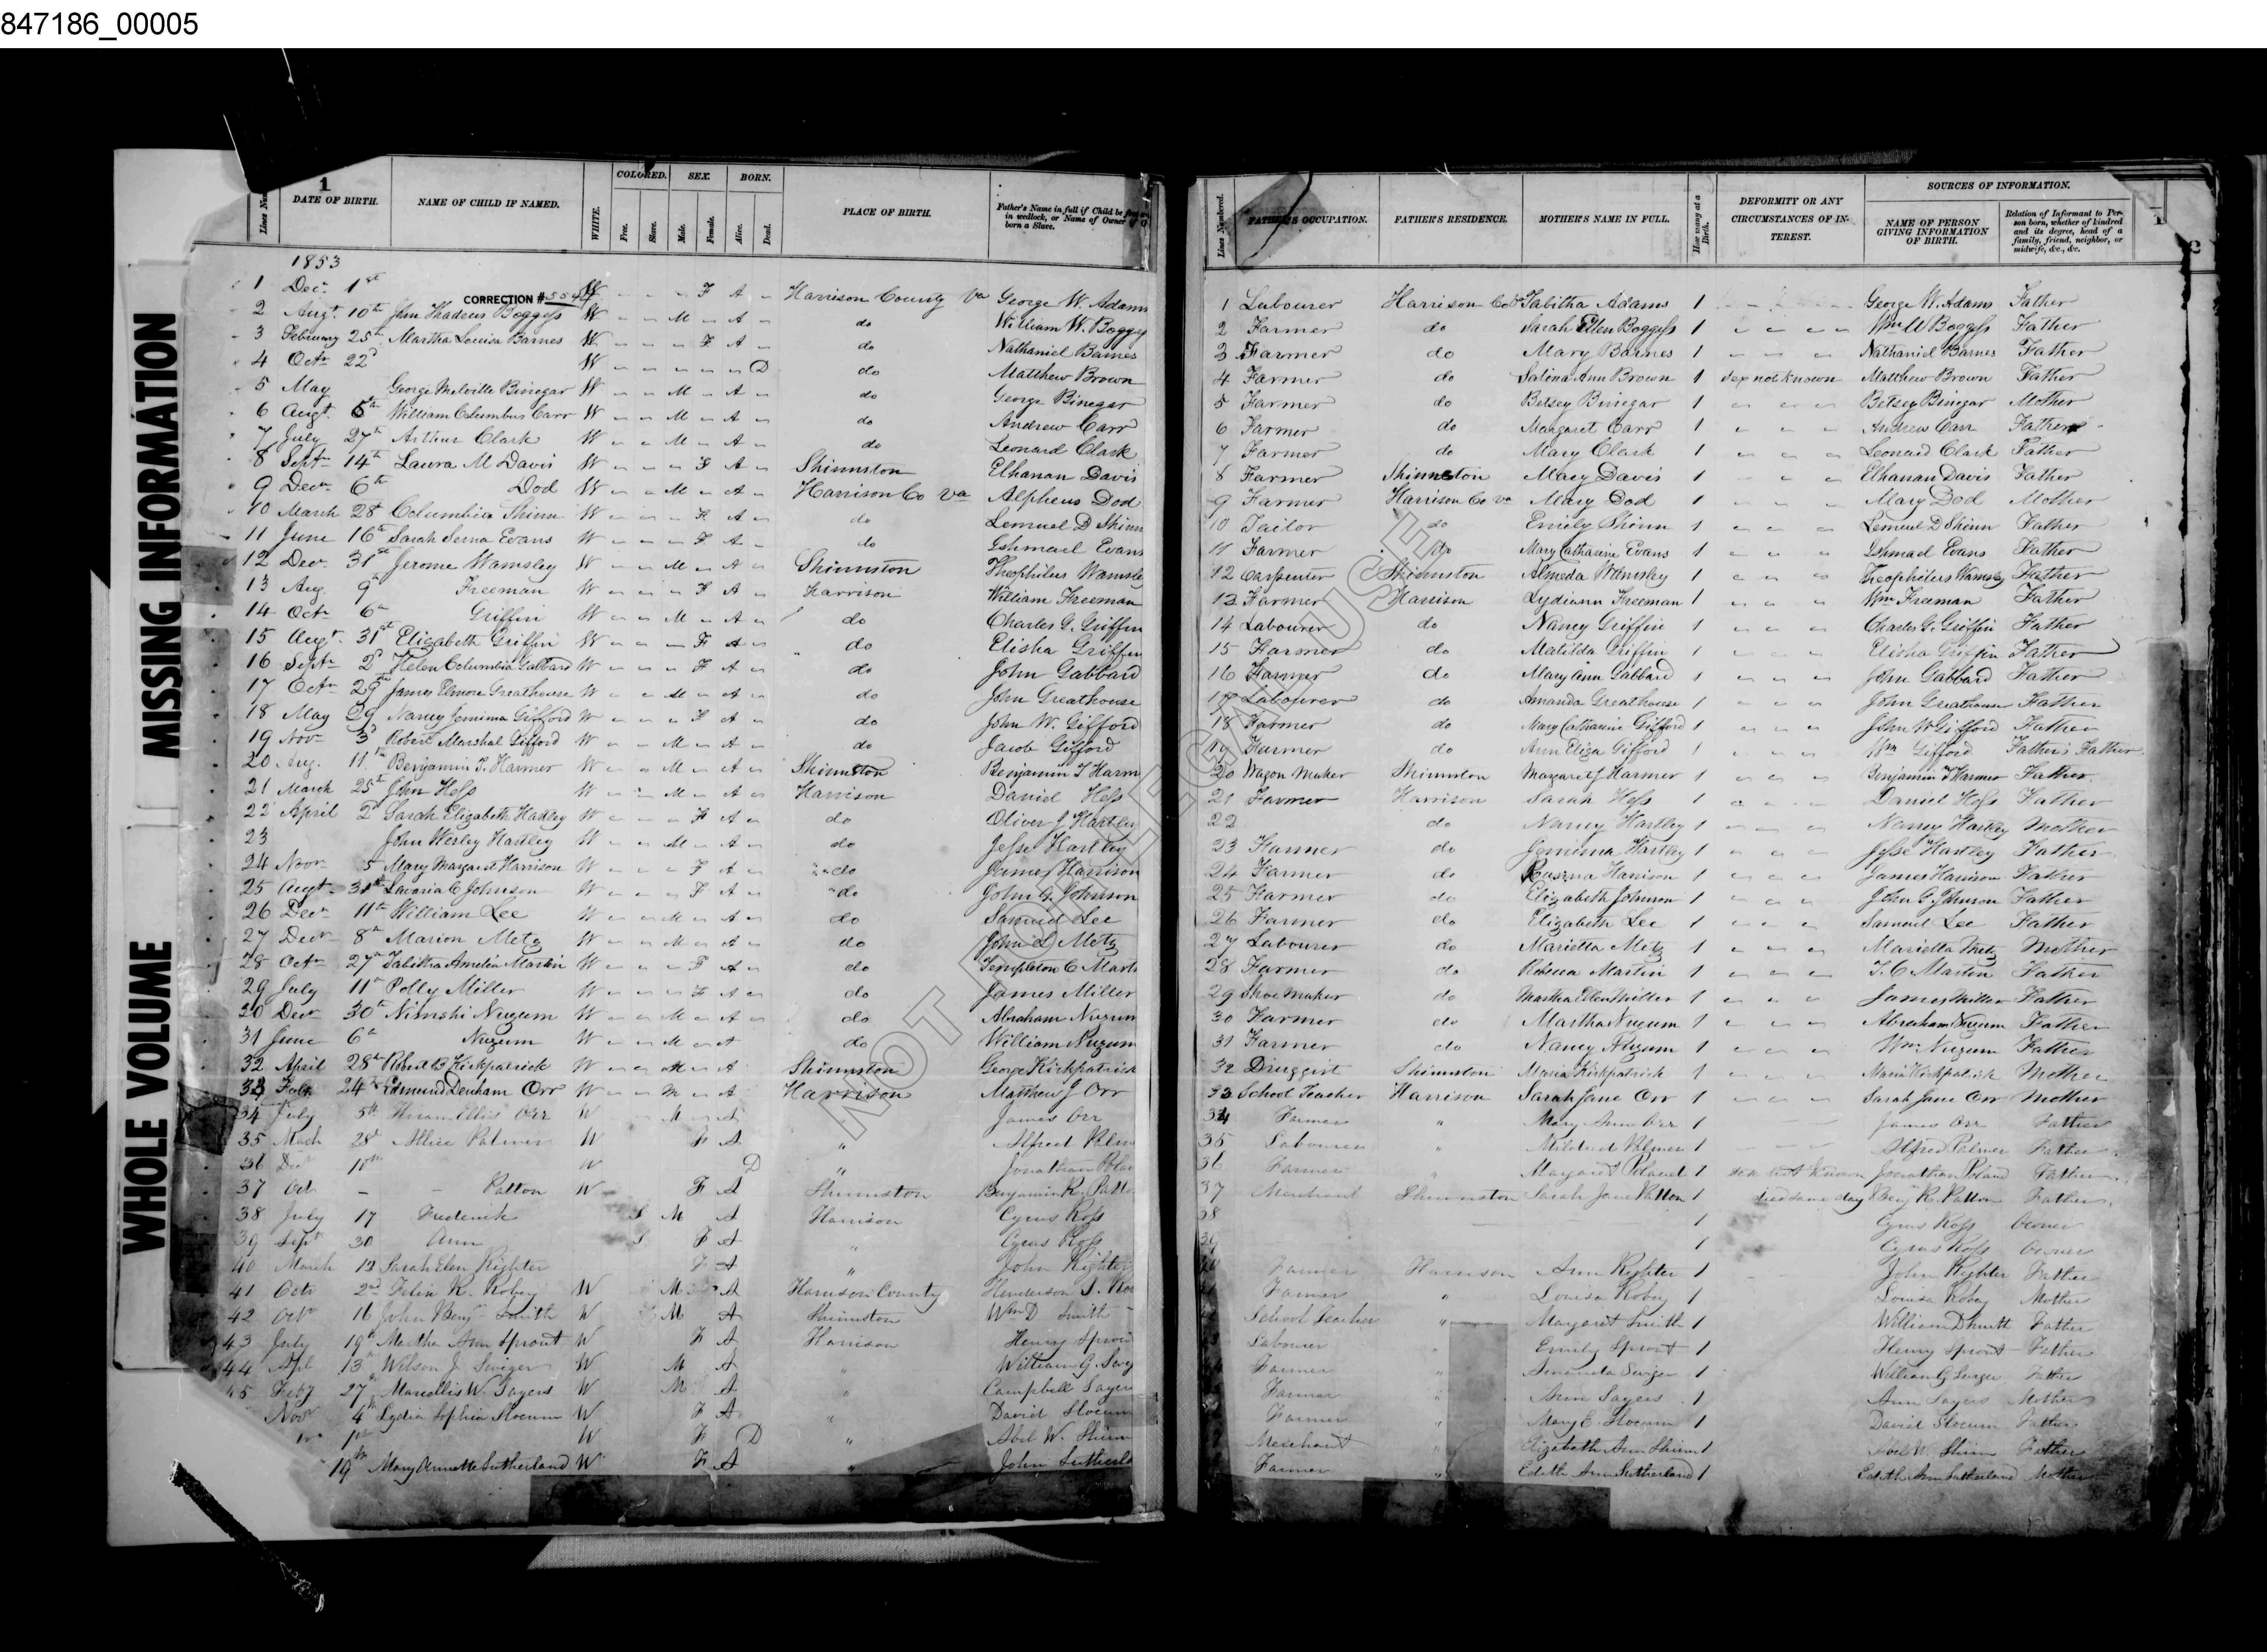 847186_00005
MISSING INFORMATION
WHOLE VOLUME
NOT FOR LEGAL USE
1
DATE OF BIRTH. NAME OF CHILD IF NAMED. WHITE. COLORED. Free. Slave. SEX. Male. Female. BORN. Alive. Dead. PLACE OF BIRTH. Father's Name in full if Child be in wedlock, or Name of Owner born a Slave.
Lines Numbered. FATHER'S OCCUPATION. FATHER'S RESIDENCE. MOTHER'S NAME IN FULL. How many at a Birth. DEFORMITY OR ANY CIRCUMSTANCES OF INTEREST. SOURCES OF INFORMATION. NAME OF PERSON GIVING INFORMATION OF BIRTH. Relation of Informant to Person born, whether of kindred and its degree, head of a family, friend, neighbor, or midwife, &c., &c.
1853
CORRECTION #
1 Dec. 1st W F A Harrison County Va George W. Adams 1 Labourer Harrison Co Tabitha Adams 1 George W. Adams Father
2 Augt. 10th John Thadeus Boggess W M A do William W. Bogges 2 Farmer do Sarah Ellen Boggess 1 Wm W Boggess Father
3 February 25th Martha Louisa Barnes W F A do Nathaniel Barnes 3 Farmer do Mary Barnes 1 Nathaniel Barnes Father
4 Octr 22d W D do Matthew Brown 4 Farmer do Salina Ann Brown 1 sex not known Matthew Brown Father
5 May George Melville Binegar W M A do George Binegar 5 Farmer do Betsey Binegar 1 Betsey Binegar Mother
6 Augt. 5th William Columbus Carr W M A do Andrew Carr 6 Farmer do Margaret Carr 1 Andrew Carr Father
7 July 27th Arthur Clark W M A do Leonard Clark 7 Farmer do Mary Clark 1 Leonard Clark Father
8 Septr 14th Laura M Davis W F A Shinnston Elhanan Davis 8 Farmer Shinnston Mary Davis 1 Elhanan Davis Father
9 Decr. 6th Dod W M A Harrison Co Va Alpheus Dod 9 Farmer Harrison Co Va Mary Dod 1 Mary Dod Mother
10 March 28th Columbia Shinn W F A do Lemuel D Shinn 10 Tailor do Emily Shinn 1 Lemuel D Shinn Father
11 June 16th Sarah Serna Evans W F A do Ishmael Evans 11 Farmer do Mary Catharine Evans 1 Ishmael Evans Father
12 Decr. 31st Jerome Wamsley W M A Shinnston Theophilus Wamsley 12 Carpenter Shinnston Almeda Wamsley 1 Theophilus Wamsley Father
13 Aug 9th Freeman W F A Harrison William Freeman 13 Farmer Harrison Lydiann Freeman 1 Wm Freeman Father
14 Octr 6th Griffin W M A do Charles G. Griffin 14 Labourer do Nancy Griffin 1 Charles G. Griffin Father
15 Augt. 31st Elizabeth Griffin W F A do Elisha Griffin 15 Farmer do Matilda Griffin 1 Elisha Griffin Father
16 Septr 2d Helen Columbia Gabbard W F A do John Gabbard 16 Farmer do Mary Ann Gabbard 1 John Gabbard Father
17 Octr 29th James Elmore Greathouse W M A do John Greathouse 17 Labourer do Amanda Greathouse 1 John Greathouse Father
18 May 29 Nancy Jemima Gifford W F A do John W. Gifford 18 Farmer do Mary Catharine Gifford 1 John W Gifford Father
19 Novr 3d Robert Marshal Gifford W M A do Jacob Gifford 19 Farmer do Ann Eliza Gifford 1 Wm Gifford Father's Father
20 Aug. 11th Benjamin T. Harmer W M A Shinnston Benjamin T Harm 20 Wagon Maker Shinnston Margaret J Harmer 1 Benjamin T Harmer Father
21 March 25th John Hess W M A Harrison Daniel Hess 21 Farmer Harrison Sarah Hess 1 Daniel Hess Father
22 April 2d Sarah Elizabeth Hadley W F A do Oliver J Hartley 22 do Nancy Hartley 1 Nancy Hartley Mother
23 John Wesley Hartley W M A do Jesse Hartley 23 Farmer do Jemima Hartley 1 Jesse Hartley Father
24 Novr 5 Mary Margaret Harrison W F A do James Harrison 24 Farmer do Harrison 1 James Harrison Father
25 Augt 31st Johnson W F A do John G. Johnson 25 Farmer do Elizabeth Johnson 1 John G. Johnson Father
26 Decr 11th William Lee W M A do Samuel Lee 26 Farmer do Elizabeth Lee 1 Samuel Lee Father
27 Decr 8th Marion Metz W M A do John L Metz 27 Labourer do Marietta Metz 1 Marietta Metz Mother
28 Octr 27th Tabitha Amelia Martin W F A do Templeton C Marti 28 Farmer do Rebecca Martin 1 T. C Martin Father
29 July 11th Polly Miller W F A do James Miller 29 Shoe Maker do Martha Ellen Miller 1 James Miller Father
30 Decr 30th Nimshi Nuzum W M A do Abraham Nuzum 30 Farmer do Martha Nuzum 1 Abraham Nuzum Father
31 June 6th Nuzum W M A do William Nuzum 31 Farmer do Nancy Nuzum 1 Wm Nuzum Father
32 April 28th Robert B Kirkpatrick W M A Shinnston George Kirkpatrick 32 Druggist Shinnston Maria Kirkpatrick 1 Maria Kirkpatrick Mother
33 Feby 24th Edmund Denham Orr W M A Harrison Matthew J Orr 33 School Teacher Harrison Sarah Jane Orr 1 Sarah Jane Orr Mother
34 July 5th Hiram Ellis Orr W M A James Orr 34 Farmer " Mary Ann Orr 1 James Orr Father
35 Mach 28th Allice Palmer W F A " Alfred Palm 35 Labourer " Mildred Palmer 1 Alfred Palmer Father
36 Decr 10th W D " Jonathan Polan 36 Farmer " Margaret Poland 1 sex not known Jonathan Poland Father
37 Oct - - Patton W F A Shinnston Benjamin R. Patto 37 Merchant Shinnston Sarah Jane Patton 1 died same day Benj R. Patton Father
38 July 17 Frederick S M A Harrison Cyrus Ross 38 1 Cyrus Ross Owner
39 Sept 30 Ann S F A " Cyrus Ross 39 1 Cyrus Ross Owner
40 March 12 Sarah Elen Righter F A " John Righter Farmer Harrison Ann Righter 1 John Righter Father
41 Octr 2nd Felix R. Robey W M A Harrison County Henderson Farmer " Louisa Robey 1 Louisa Robey Mother
42 Octr 16 John Benj Smith W M A Shinnston Wm D Smith School Teacher " Margaret Smith 1 William D Smith Father
43 July 19th Martha Ann Sprout W F A Harrison Henry Sprou Labourer " Emily Sprout 1 Henry Sprout Father
44 Apl 13th Wilson J. Swiger W M A " William G. Swig Farmer " Amanda Swiger 1 William G Swiger Father
45 Feby 27th Marcellis W. Sayers W M A " Campbell Sayers Farmer " Ann Sayers 1 Ann Sayers Mother
Novr 4th Lydia Sophia Slocum W F A " David Slocum Farmer " Mary E. Slocum 1 David Slocum Father
1st W F D " Abel W. Shinn Merchant " Elizabeth Ann Shinn 1 Abel W. Shinn Father
19th Mary Annette Sutherland W F A " John Sutherla Farmer " Edith Ann Sutherland 1 Edith Ann Sutherland Mother